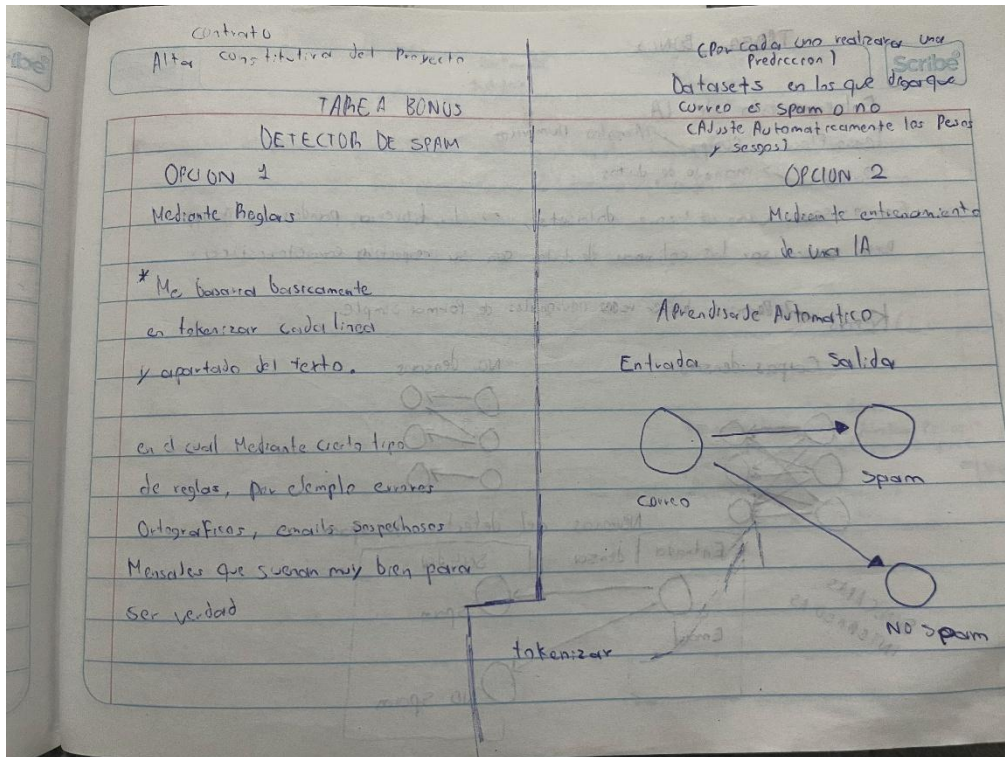 contrato
Alta constitutiva del Proyecto
TAREA BONUS
DETECTOR DE SPAM
OPCION 1
Mediante Reglas
* Me basaria basicamente
en tokenizar cada linea
y apartado del texto.
en el cual Mediante cierto tipo
de reglas, por ejemplo errores
Ortograficos, emails sospechosos
Mensajes que suenan muy bien para
ser verdad
(Por cada uno realizara una
Prediccion)
Scribe
Datasets en los que diga que
correo es spam o no
(Ajuste Automaticamente los Pesos
y sesgos)
OPCION 2
Mediante entrenamiento
de una IA
Aprendisade Automatico
Entrada Salida
Correo
Spam
NO spam
tokenizar